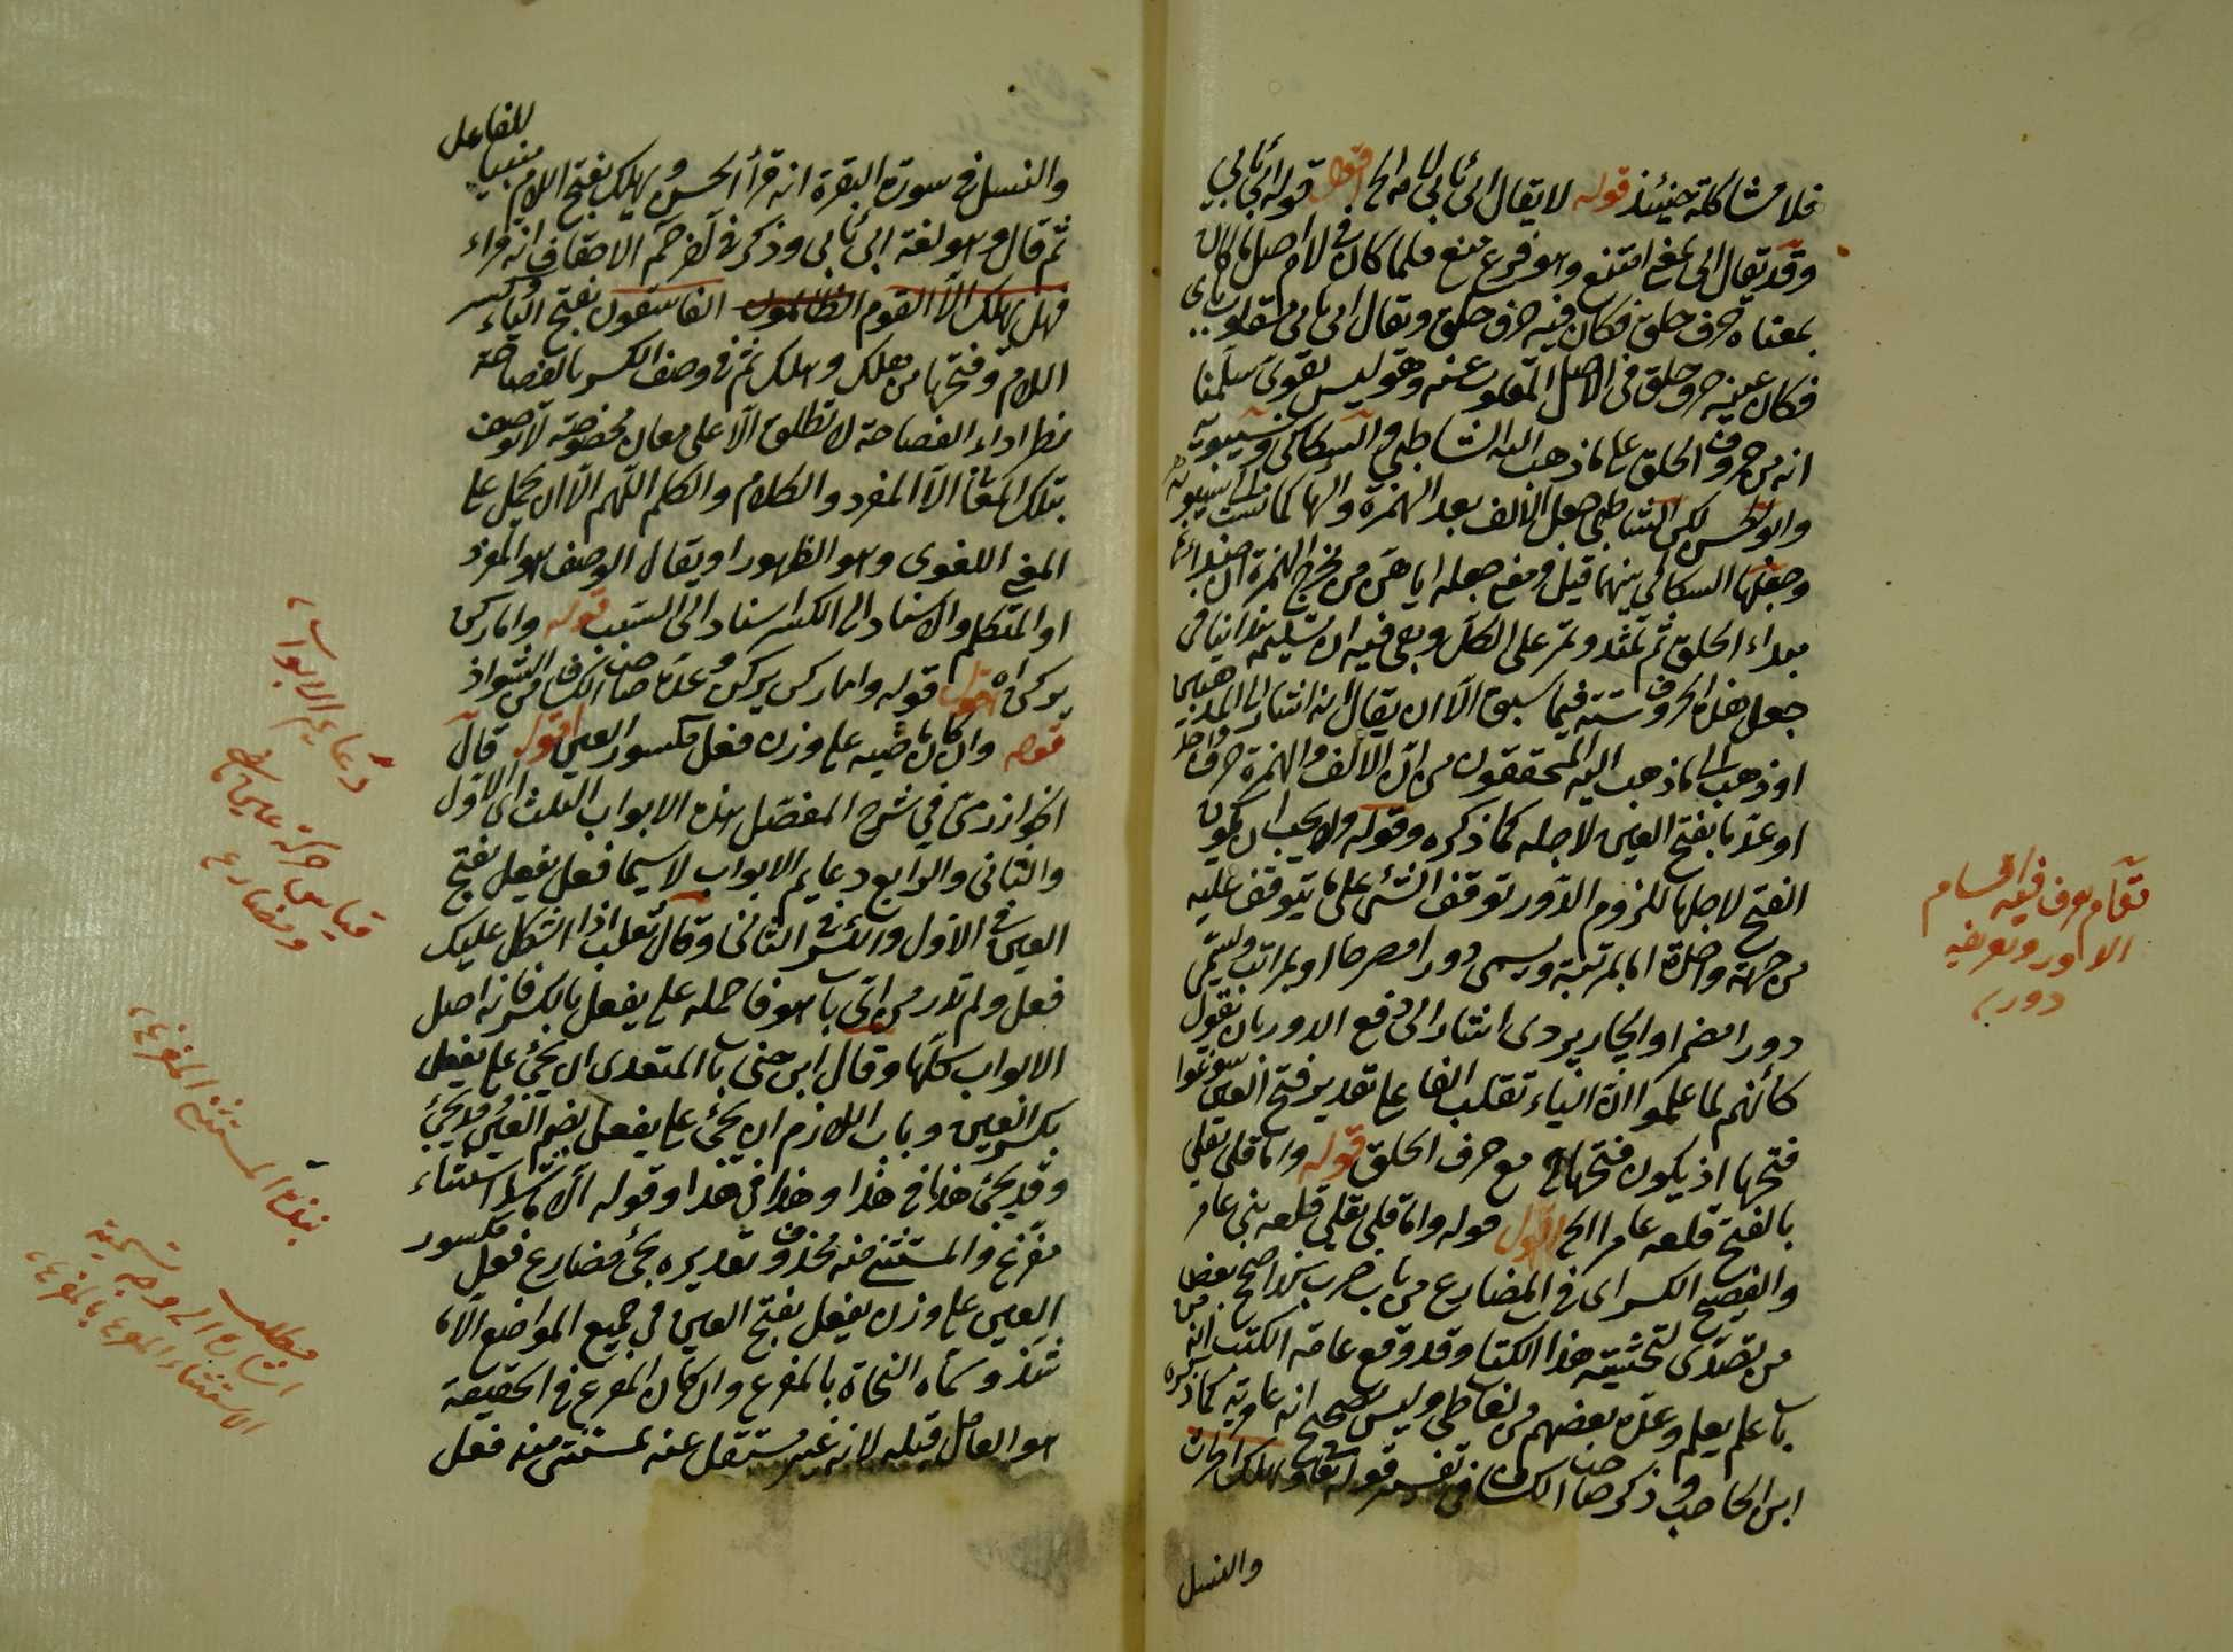 فلا مشاكلة حينئذ قوله لا يقال ابى يأبى لانه الخ اقول قوله ابى يأبى
وقد يقال ابى بمعنى امتنع وهو فرع منع فلما كان فى لام اصل ما كان
بمعناه حرف حلق فكان فيه حرف حلق ويقال ابى يأبى مقلوب
فكان عينه حرف حلق فى الاصل المقلوب عنه وهو ليس بقوى سلمنا
انه من حروف الحلق على ما ذهب اليه الشاطبي والسكاكى وسيبويه
وابو الحسن لكن الشاطبي جعل الالف بعد الهمزة والهاء كما نسب الى سيبويه
وجعلها السكاكي بينهما قيل ومعنى جعله اياها من مخرج الهمزة ان
مبداء الحلق ثم تمتد وتمر على الكل وبقى فيه ان تسليمه هذا ينافى
جعل هذه الحروف ستة فيما سبق الا ان يقال انه اشار الى المذهبين
او ذهب الى ما ذهب اليه المحققون من ان الالف والهمزة حرف واحد
او عد ما بفتح العين لاجله كما ذكره وقوله ولا يجب ان يكون
الفتح لاجلها للزوم الدور توقف الشئ على ما يتوقف عليه
من جهة واحدة اما بمرتبة ويسمى دورا مصرحا او بمراتب ويسمى
دورا مضمرا والجاربردى اشار الى دفع الدور بان نقول
كأنهم لما علموا ان الياء تقلب الفا على تقدير فتح العين سوغوا
فتحها اذ يكون فتحها مع حرف الحلق قوله واما قلى يقلى
بالفتح فلغة عامر الخ اقول قوله واما قلى يقلى فلغة بنى عامر
والفصيح الكسر اى فى المضارع من باب ضرب بهذا صح بعض
من تصدى لتحشية هذا الكتاب وقد وقع عامة الكتب انه من
باب علم يعلم وعده بعضهم من لغة طى وليس بصحيح انه عامرية كما ذكره
ابن الحاجب وذكر صاحب الكشاف فى تفسير قوله تعالى ويهلك الحرث
والنسل
تمام يعرف فيه اقسام
الدور وتعريفه
دور
للفاعل
والنسل فى سورة البقرة انه قرأ الحسن ويهلك بفتح اللام مبنيا
ثم قال وهو لغة ابى يأبى وذكر فى آخر حم الاحقاف انه قراء
فهل يهلك الا القوم الظالمون الفاسقون بفتح الياء وكسر
اللام وفتحها من هلك وهلك ثم فى وصف الكسر بالفصاحة
نظر اذ الفصاحة لا تطلق الا على معان مخصوصة لا توصف
بتلك المعانى الا المفرد والكلام والكلم اللهم الا ان يحمل على
المعنى اللغوى وهو الظهور او يقال الوصف هو المفرد
او المتكلم والاسناد الى الكسر اسناد الى السبب قوله واما ركن
يركن اه اقول قوله واما ركن يركن وعده صاحب الكشاف من الشواذ
قوله وان كان ماضيه على وزن فعل مكسور العين اقول قال
الخوارزمى فى شرح المفصل هذه الابواب الثلث اى الاول
والثانى والرابع دعايم الابواب لاسيما فعل يفعل بفتح
العين فى الاول والكسر فى الثانى وقال ثعلب اذا اشكل عليك
فعل ولم تدر من اى باب هو فاحمله على يفعل بالكسر فانه اصل
الابواب كلها وقال ابن جنى باب المتعدى ان يجئ على يفعل
بكسر العين وباب اللازم ان يجئ على يفعل بضم العين
وقد يجئ هذا فى هذا وهذا فى هذا وقوله الا ما شذ استثناء
مفرغ والمستثنى منه محذوف تقديره يجئ مضارع فعل مكسور
العين على وزن يفعل بفتح العين فى جميع المواضع الا ما
شذ وسماه النحاة بالمفرغ وان كان المفرغ فى الحقيقة
هو العامل قبله لانه غير مستقل عنه بمستثنى منه فعل
دعايم الابواب
قياس حركة عين
ومضارع
المستثنى المفرغ
مطلب
اشارة الى وجه تسمية
الاستثناء المفرغ بالمفرغ